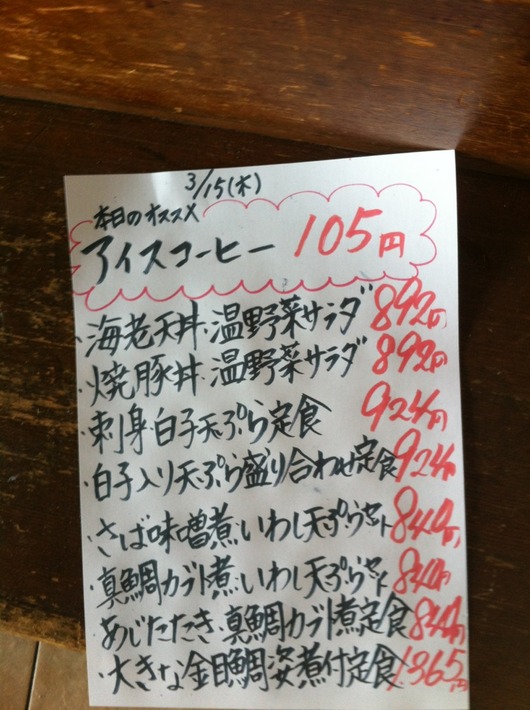 3/15(木)
本日のオススメ
アイスコーヒー 105円
・海老天丼・温野菜サラダ 892円
・焼豚丼・温野菜サラダ 892円
・刺身・白子天ぷら定食 924円
・白子入り天ぷら盛り合わせ定食 924円
・さば味噌煮・いわし天ぷらセット 840円
・真鯛カブト煮・いわし天ぷらセット 840円
・あじたたき・真鯛カブト煮定食 844円
・大きな金目鯛姿煮付定食 1365円